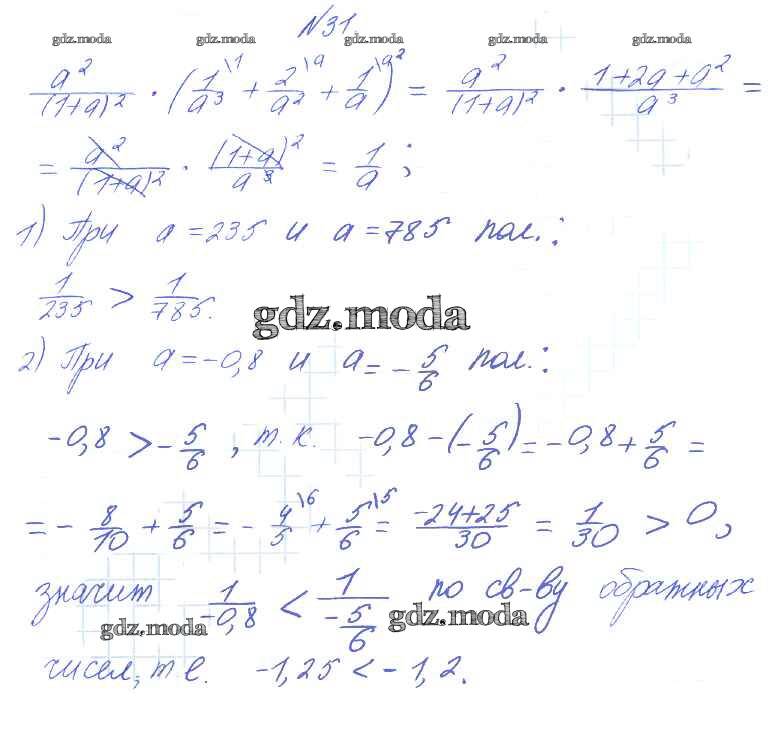 №31
gdz.moda gdz.moda gdz.moda gdz.moda gdz.moda
a²/(1+a)² · (1/a³ \1 + 2/a² \a + 1/a \a²) = a²/(1+a)² · (1+2a+a²)/a³ =
= a²/(1+a)² · (1+a)²/a³ = 1/a ;
1) При a=235 и a=785 пол.:
1/235 > 1/785.
gdz.moda
2) При a=-0,8 и a=-5/6 пол.:
-0,8 > -5/6 , т.к. -0,8-(-5/6)=-0,8+5/6 =
=-8/10+5/6=-4/5 \6 +5/6 \5 = (-24+25)/30 = 1/30 > 0,
значит 1/-0,8 < 1/(-5/6) по св-ву обратных
gdz.moda gdz.moda
чисел, т.е. -1,25 < -1,2.